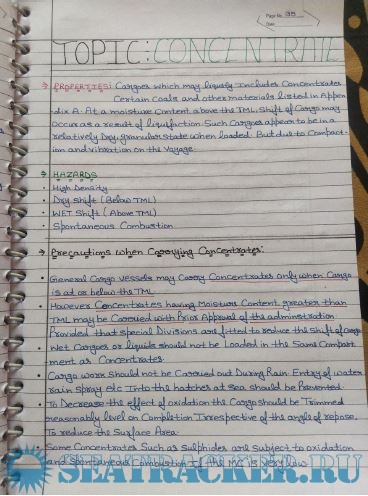 Page No. 35
Date
TOPIC: CONCENTRATE
→ PROPERTIES: Cargoes which may liquefy Includes Concentrates
Certain Coals and other materials listed in Appen
dix A. At a moisture Content above the TML. Shift of Cargo may
occur as a result of liquifaction. Such Cargoes appear to be in a
relatively Dry, granular state when loaded. But due to Compact-
ion and vibration on the Voyage
→ HAZARDS
• High Density
• Dry Shift (Below TML)
• WET Shift (Above TML)
• Spontaneous Combustion
→ Precautions when Carrying Concentrates:
• General Cargo vessels may Carry Concentrates only when Cargo
is at or below the TML.
• However Concentrates having Moisture Content greater than
TML may be Carried with Prior Approval of the administration
Provided that special Divisions are fitted to reduce the Shift of Cargo
Wet Cargoes or liquids should not be Loaded in the Same Compart
ment as Concentrates.
• Cargo work Should not be Carried out During Rain. Entry of water
rain, Spray etc Into the hatches at sea should be Prevented.
• To Decrease the effect of oxidation the Cargo should be Trimmed
reasonably level on Completion Irrespective of the angle of repose.
To reduce the Surface Area.
• Some Concentrates Such as Sulphides are subject to oxidation
and Spontaneous Combustion If the MC is very low
SEATRACKER.RU